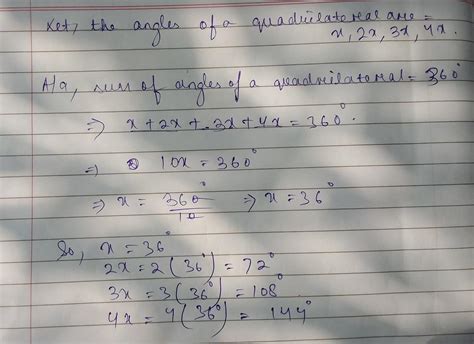 Let, the angles of a quadrilateral are =
x, 2x, 3x, 4x.
A/q, sum of angles of a quadrilateral = 360°
⇒ x + 2x + 3x + 4x = 360°.
⇒ 10x = 360°
⇒ x = 360°/10 ⇒ x = 36°
So, x = 36°
2x = 2(36°) = 72°
3x = 3(36°) = 108°
4x = 4(36°) = 144°